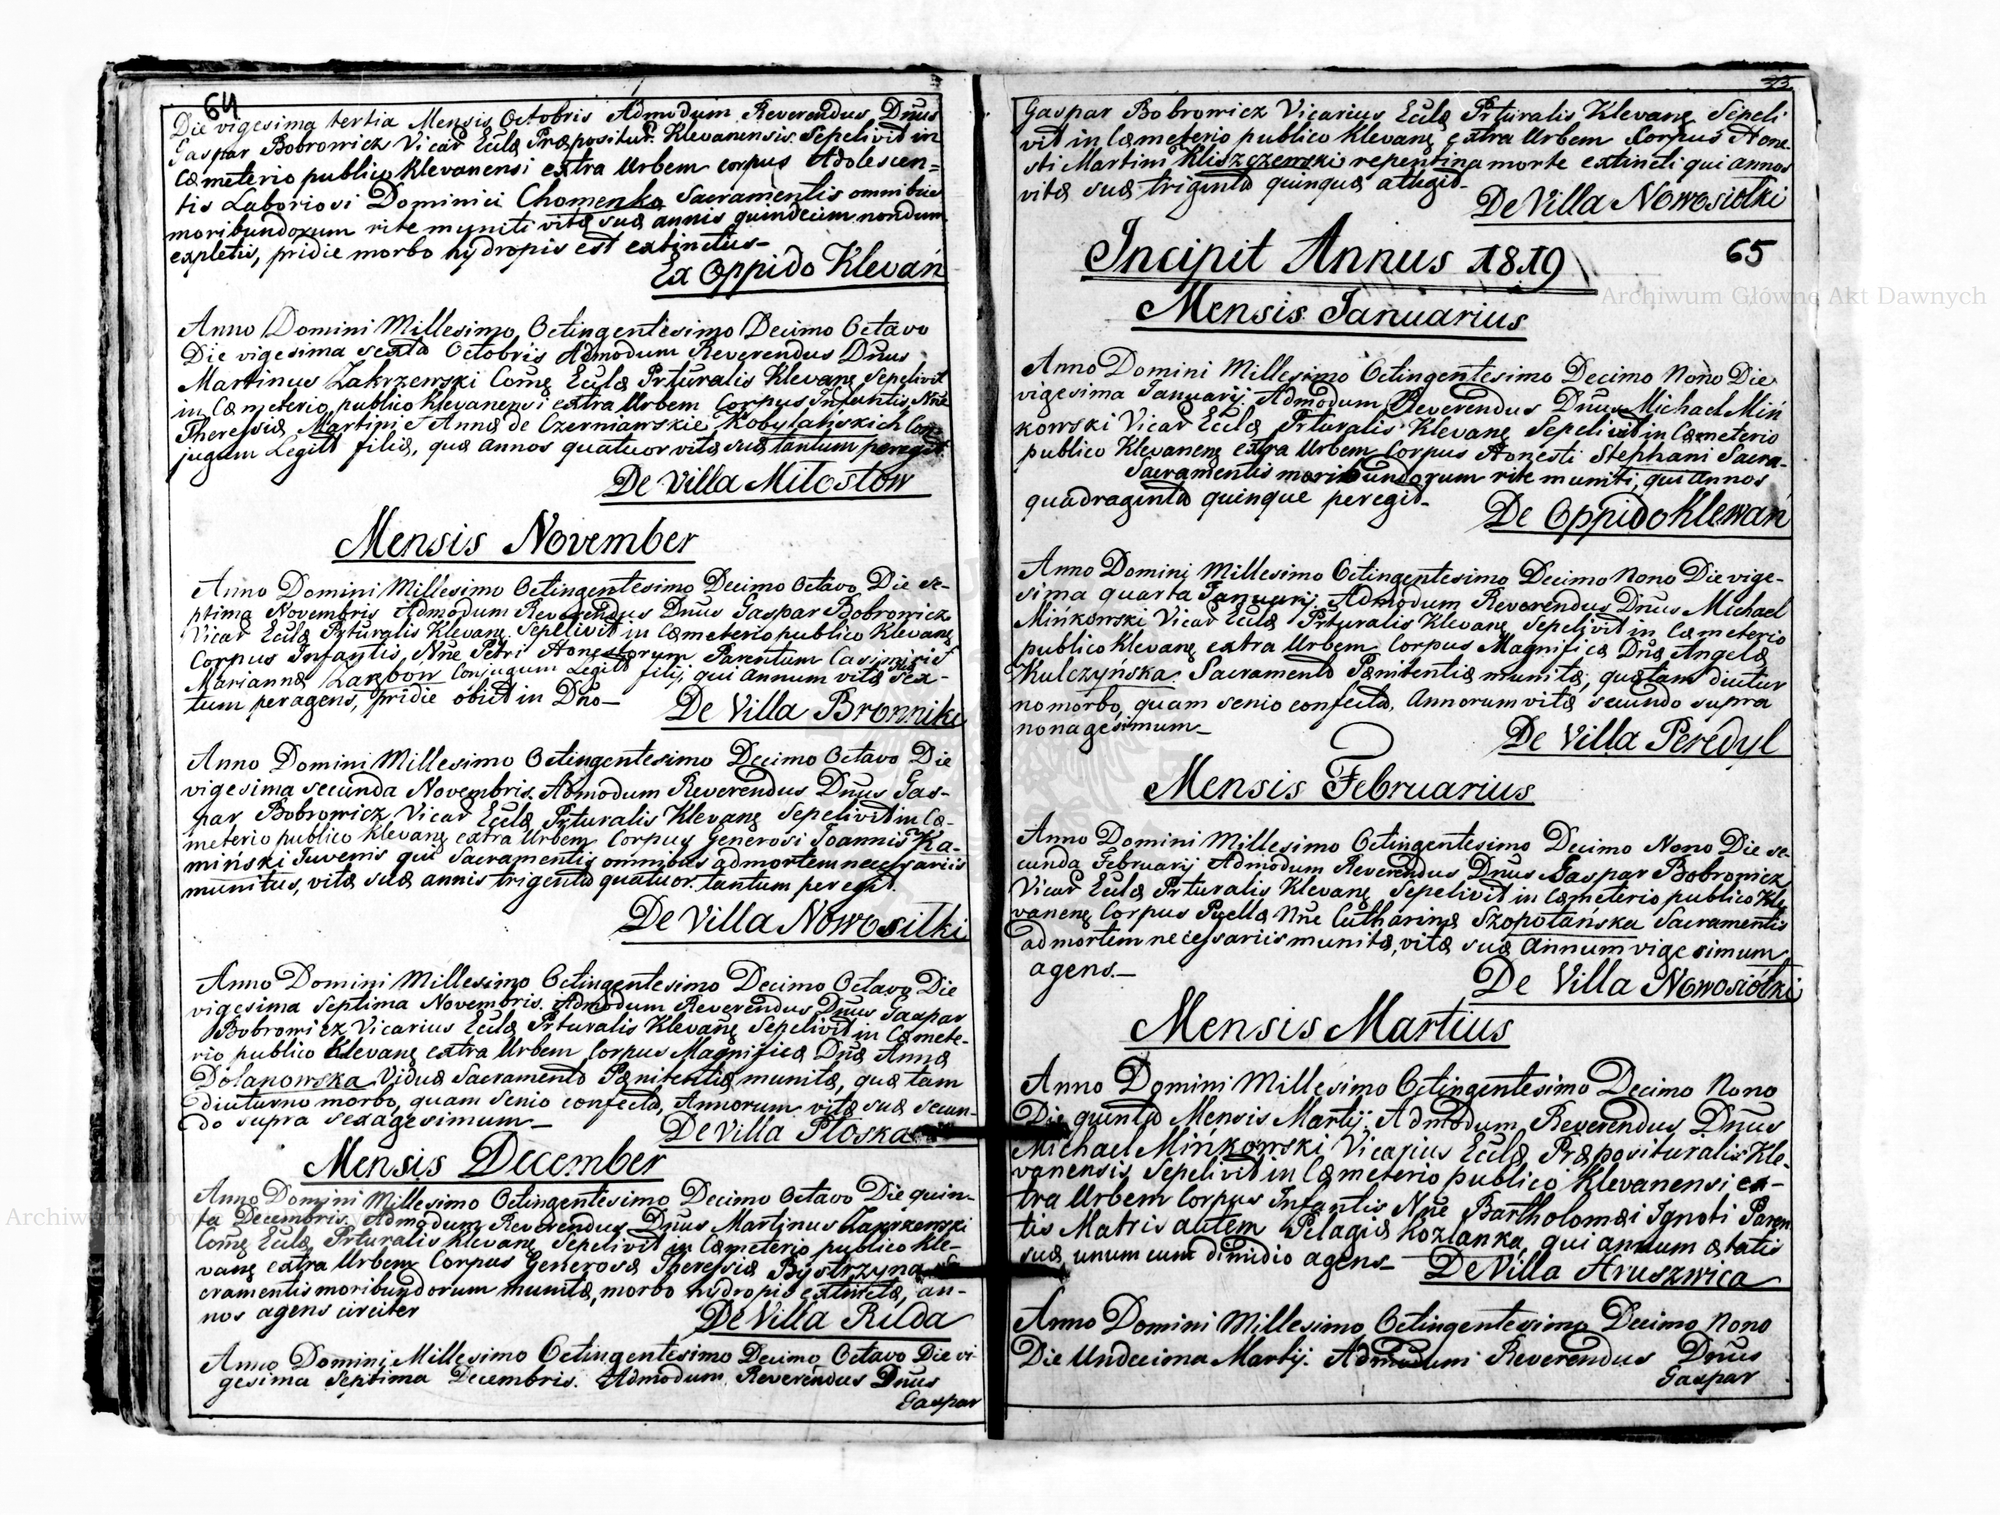 64
Die vigesima tertia Mensis Octobris Admodum Reverendus Dnus
Gaspar Bobrowicz Vicar Eccla Præpositur. Klevanensis Sepelivit in
Cæmeterio publico Klevanensi extra Urbem corpus Adolescen=
tis Laboriosi Dominici Chomenko Sacramentis omnibus
moribundorum rite muniti vitæ suæ annis quindecim nondum
expletis, pridie morbo hydropis est extinctus
Ex Oppido Klevań
Anno Domini Millesimo Octingentesimo Decimo Octavo
Die vigesima sexta Octobris Admodum Reverendus Dnus
Martinus Zakrzewski Comę Eclæ Prturalis Klevanę Sepelivit
in Cæmeterio publico Klevanensi extra Urbem Corpus Infantis Nñe
Theressiæ Martini et Annæ de Czerniawskie Kobylańskich Con
jugum Legitt filiæ, quæ annos quatuor vitæ suæ tantum peregit
De Villa Miłostow
Mensis November
Anno Domini Millesimo Octingentesimo Decimo Octavo Die se-
ptima Novembris Admodum Reverendus Dnus Gaspar Bobrowicz
Vicar Eclæ Prturalis Klevanę Sepelivit in Cæmeterio publico Klevanę
Corpus Infantis Nñe Petri Honestorum Parentum Casimiri et
Mariannæ Conjugum Legitt filij, qui annum vitæ sex-
tum peragens, pridie obiit in Dno
De Villa Bronniki
Anno Domini Millesimo Octingentesimo Decimo Octavo Die
vigesima secunda Novembris, Admodum Reverendus Dnus Gas-
par Bobrowicz Vicar Eclæ Prturalis Klevanę Sepelivit in Cæ-
meterio publico Klevanę extra Urbem Corpus Generosi Joannis Ka-
miński Juvenis qui Sacramentis omnibus ad mortem necessariis
munitus, vitæ suæ annis trigenta quatuor tantum peregit.
De Villa Nowosilki
Anno Domini Millesimo Octingentesimo Decimo Octavo Die
vigesima Septima Novembris. Admodum Reverendus Dnus Gaspar
Bobrowicz Vicarius Eclæ Prturalis Klevanę Sepelivit in Cæmete-
rio publico Klevanę extra Urbem Corpus Magnificæ Dnæ Annæ
Dołanowska Viduæ Sacramento Pænitentiæ munitæ, quæ tam
diuturno morbo, quam senio confecta, Annorum vitæ suæ secun-
do supra sexagesimum
De Villa Płoska
Mensis December
Anno Domini Millesimo Octingentesimo Decimo Octavo Die quin-
ta Decembris. Admodum Reverendus Dnus Martinus Zakrzewski
Comę Eclæ Prturalis Klevanę Sepelivit in Cæmeterio publico Kle-
vanę extra Urbem Corpus Generosæ Theressiæ Bystrzyna
cramentis moribundorum munitæ, morbo hydropis extinctæ, an-
nos agens circiter
De Villa Rilda
Anno Domini Millesimo Octingentesimo Decimo Octavo Die vi
gesima Septima Decembris. Admodum Reverendus Dnus
Gaspar
Gaspar Bobrowicz Vicarius Eclæ Prturalis Klevanę Sepeli
vit in Cæmeterio publico Klevanę extra Urbem Corpus Hone-
sti Martini Kliszczewski repentina morte extincti qui annos
vitæ suæ triginta quinquæ attigit
De Villa Nowosiołki
Incipit Annus 1819
65
Mensis Januarius
Anno Domini Millesimo Octingentesimo Decimo Nono Die
vigesima Januarij. Admodum Reverendus Dnus Michael Miń
kowski Vicar Eclæ Prturalis Klevanę Sepelivit in Cæmeterio
publico Klevanenę extra Urbem Corpus Honesti Stephani Sacra-
Sacramentis moribundorum rite muniti, qui annos
quadraginta quinque peregit
De Oppido Klewań
Anno Domini Millesimo Octingentesimo Decimo Nono Die vige-
sima quarta Januarij. Admodum Reverendus Dnus Michael
Mińkowski Vicar Eclæ Prturalis Klevanę Sepelivit in Cæmeterio
publico Klevanę extra Urbem Corpus Magnificæ Dnæ Angelæ
Kulczyńska Sacramento Pænitentiæ munitæ, quætam diutur
no morbo, quam senio confecta, Annorum vitæ secundo supra
nonagesimum
De Villa Peredyl
Mensis Februarius
Anno Domini Millesimo Octingentesimo Decimo Nono Die se-
cunda Februarij Admodum Reverendus Dnus Gaspar Bobrowicz
Vicar Eclæ Prturalis Klevanę Sepelivit in Cæmeterio publico Kle
vanenę Corpus Puellæ Nñe Catharinæ Szopotańska Sacramentis
ad mortem necessariis munitæ, vitæ suæ Annum vigesimum
agens
De Villa Nowosiołki
Mensis Martius
Anno Domini Millesimo Octingentesimo Decimo Nono
Die quinta Mensis Martij. Admodum Reverendus Dnus
Michael Mińkowski Vicarius Eclæ Præposituralis Kle-
vanensis Sepelivit in Cæmeterio publico Klevanensi ex-
tra Urbem Corpus Infantis Nñe Bartholomæi Ignoti Paren
tis Matris autem Pelagiæ Kozlanka, qui annum ætatis
suæ unum cum dimidio agens
De Villa Hruszwica
Anno Domini Millesimo Octingentesimo Decimo Nono
Die Undecima Martij. Admodum Reverendus Dnus
Gaspar
Archiwum Główne Akt Dawnych
Archiwum Główne Akt Dawnych